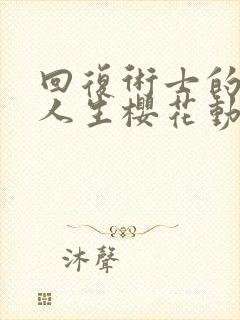 回復術士的
人生櫻花動
沐聲